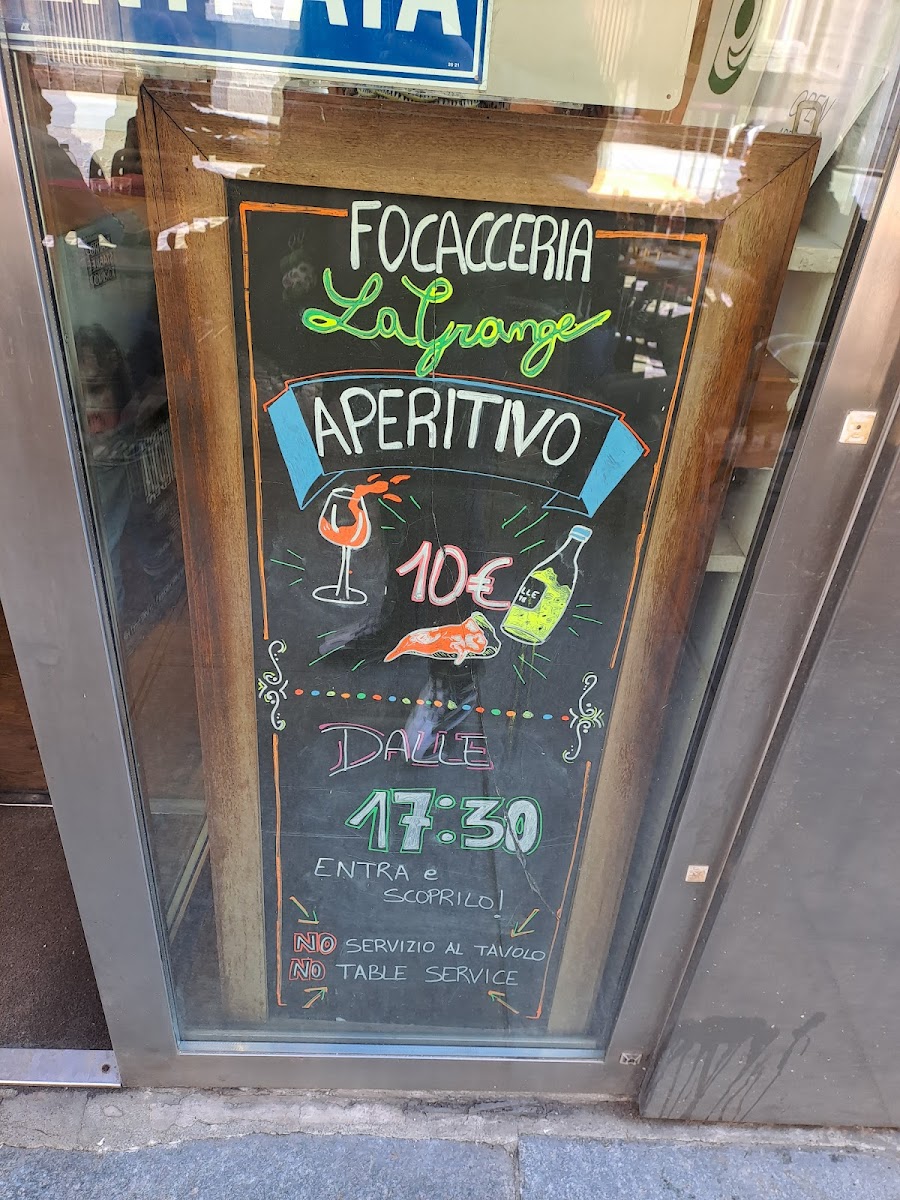 ENTRATA
OPEN
FOCACCERIA
LaGrange
APERITIVO
10€
DALLE
17:30
ENTRA e
SCOPRILO!
NO SERVIZIO AL TAVOLO
NO TABLE SERVICE